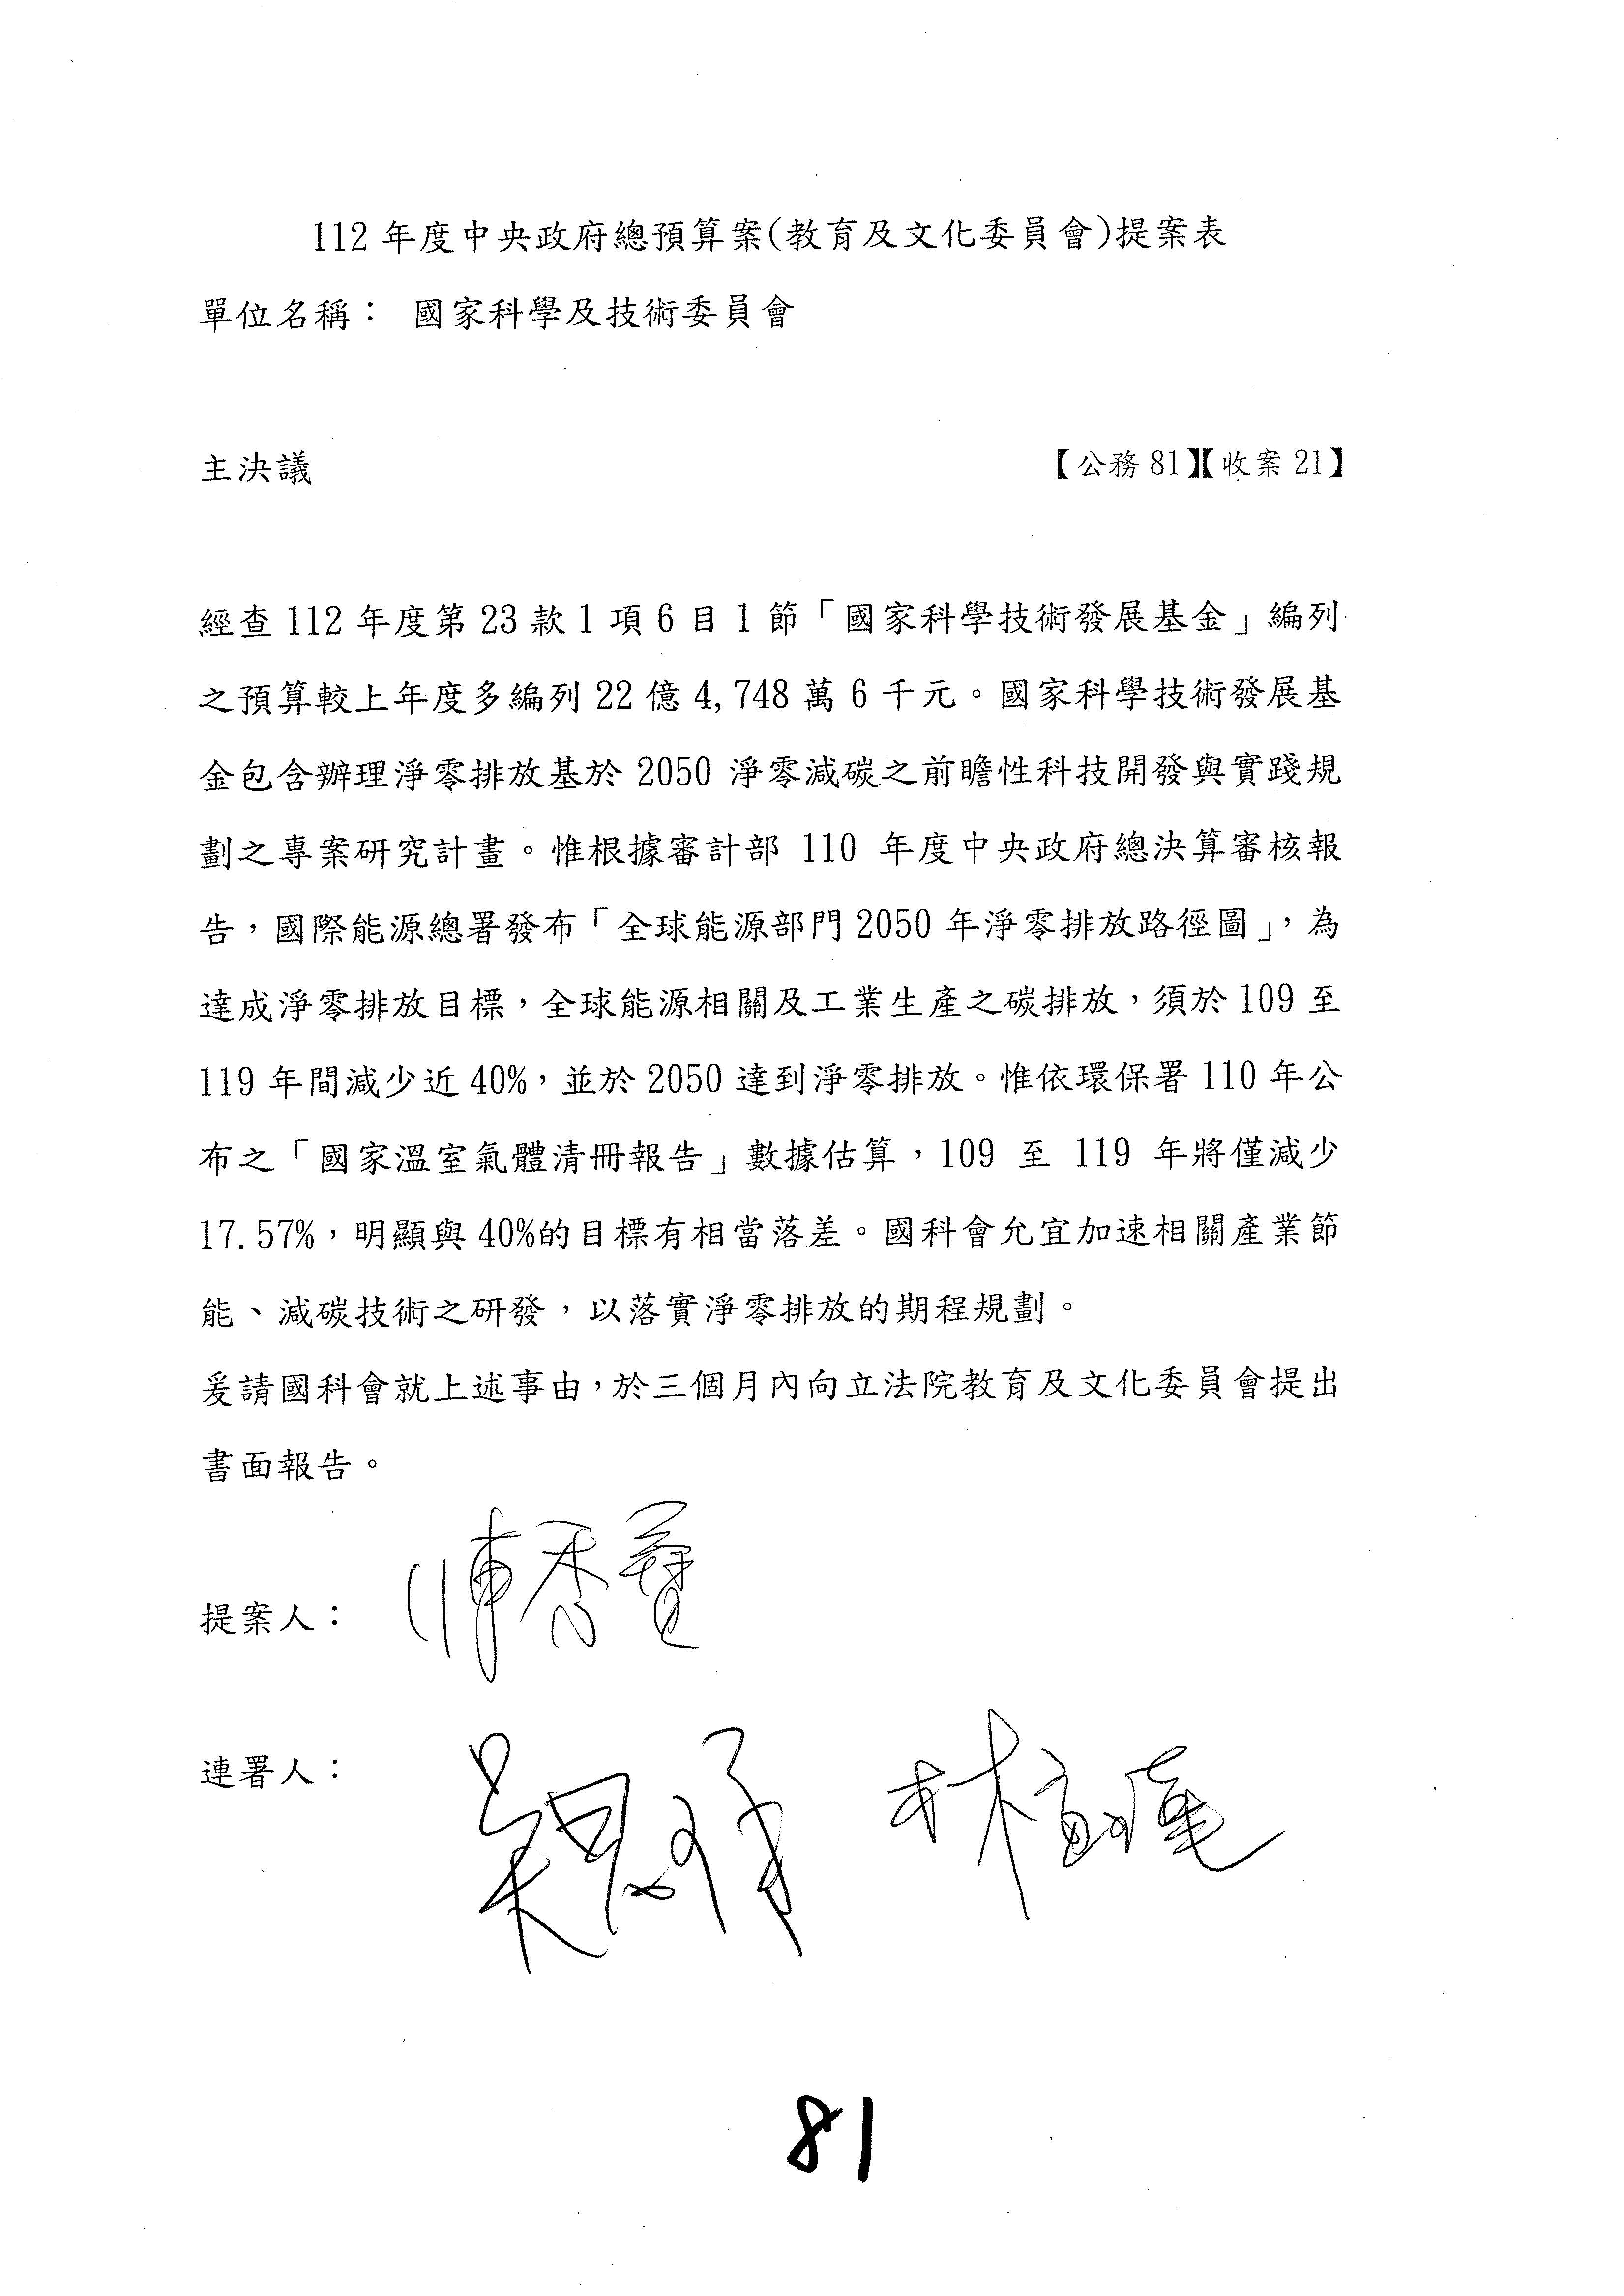 112年度中央政府總預算案(教育及文化委員會)提案表
單位名稱： 國家科學及技術委員會
主決議 【公務81】【收案21】
經查112年度第23款1項6目1節「國家科學技術發展基金」編列
之預算較上年度多編列22億4,748萬6千元。國家科學技術發展基
金包含辦理淨零排放基於2050淨零減碳之前瞻性科技開發與實踐規
劃之專案研究計畫。惟根據審計部 110 年度中央政府總決算審核報
告，國際能源總署發布「全球能源部門2050年淨零排放路徑圖」，為
達成淨零排放目標，全球能源相關及工業生產之碳排放，須於109至
119年間減少近40%，並於2050達到淨零排放。惟依環保署110年公
布之「國家溫室氣體清冊報告」數據估算，109 至 119 年將僅減少
17.57%，明顯與40%的目標有相當落差。國科會允宜加速相關產業節
能、減碳技術之研發，以落實淨零排放的期程規劃。
爰請國科會就上述事由，於三個月內向立法院教育及文化委員會提出
書面報告。
提案人：
連署人：
81